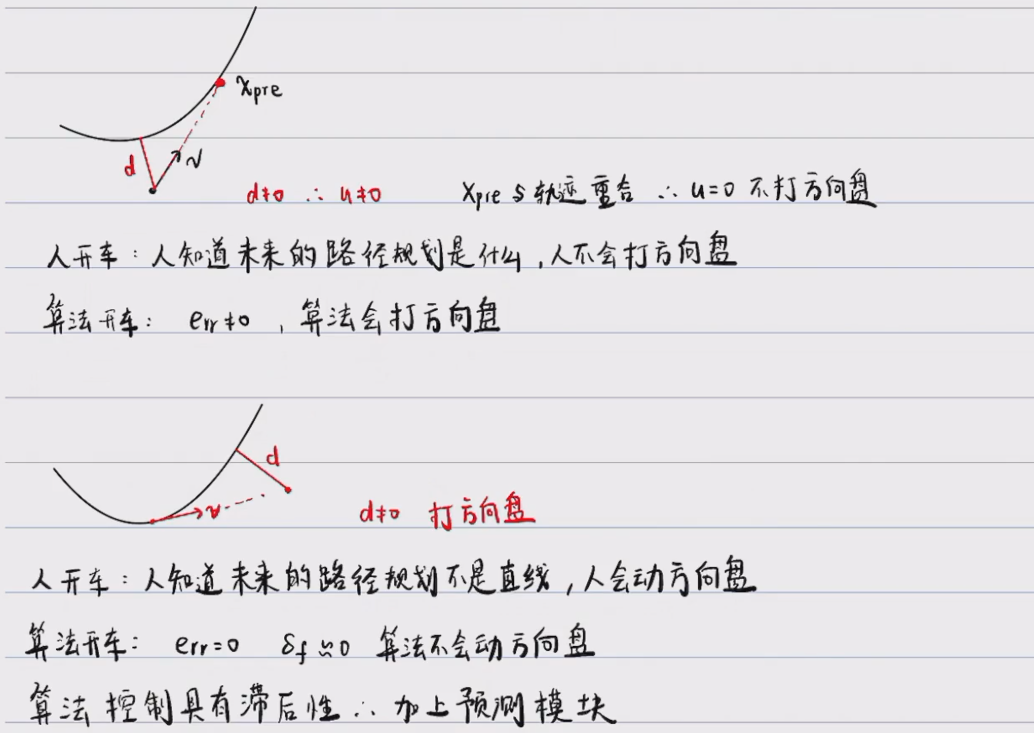 Xpre
d
v
d≠0 ∴ u≠0 Xpre 与轨迹重合 ∴ u=0 不打方向盘
人开车：人知道未来的路径规划是什么，人不会打方向盘
算法开车： err≠0 ，算法会打方向盘
d
v
d≠0 打方向盘
人开车：人知道未来的路径规划不是直线，人会动方向盘
算法开车： err=0 δf≈0 算法不会动方向盘
算法控制具有滞后性 ∴ 加上预测模块